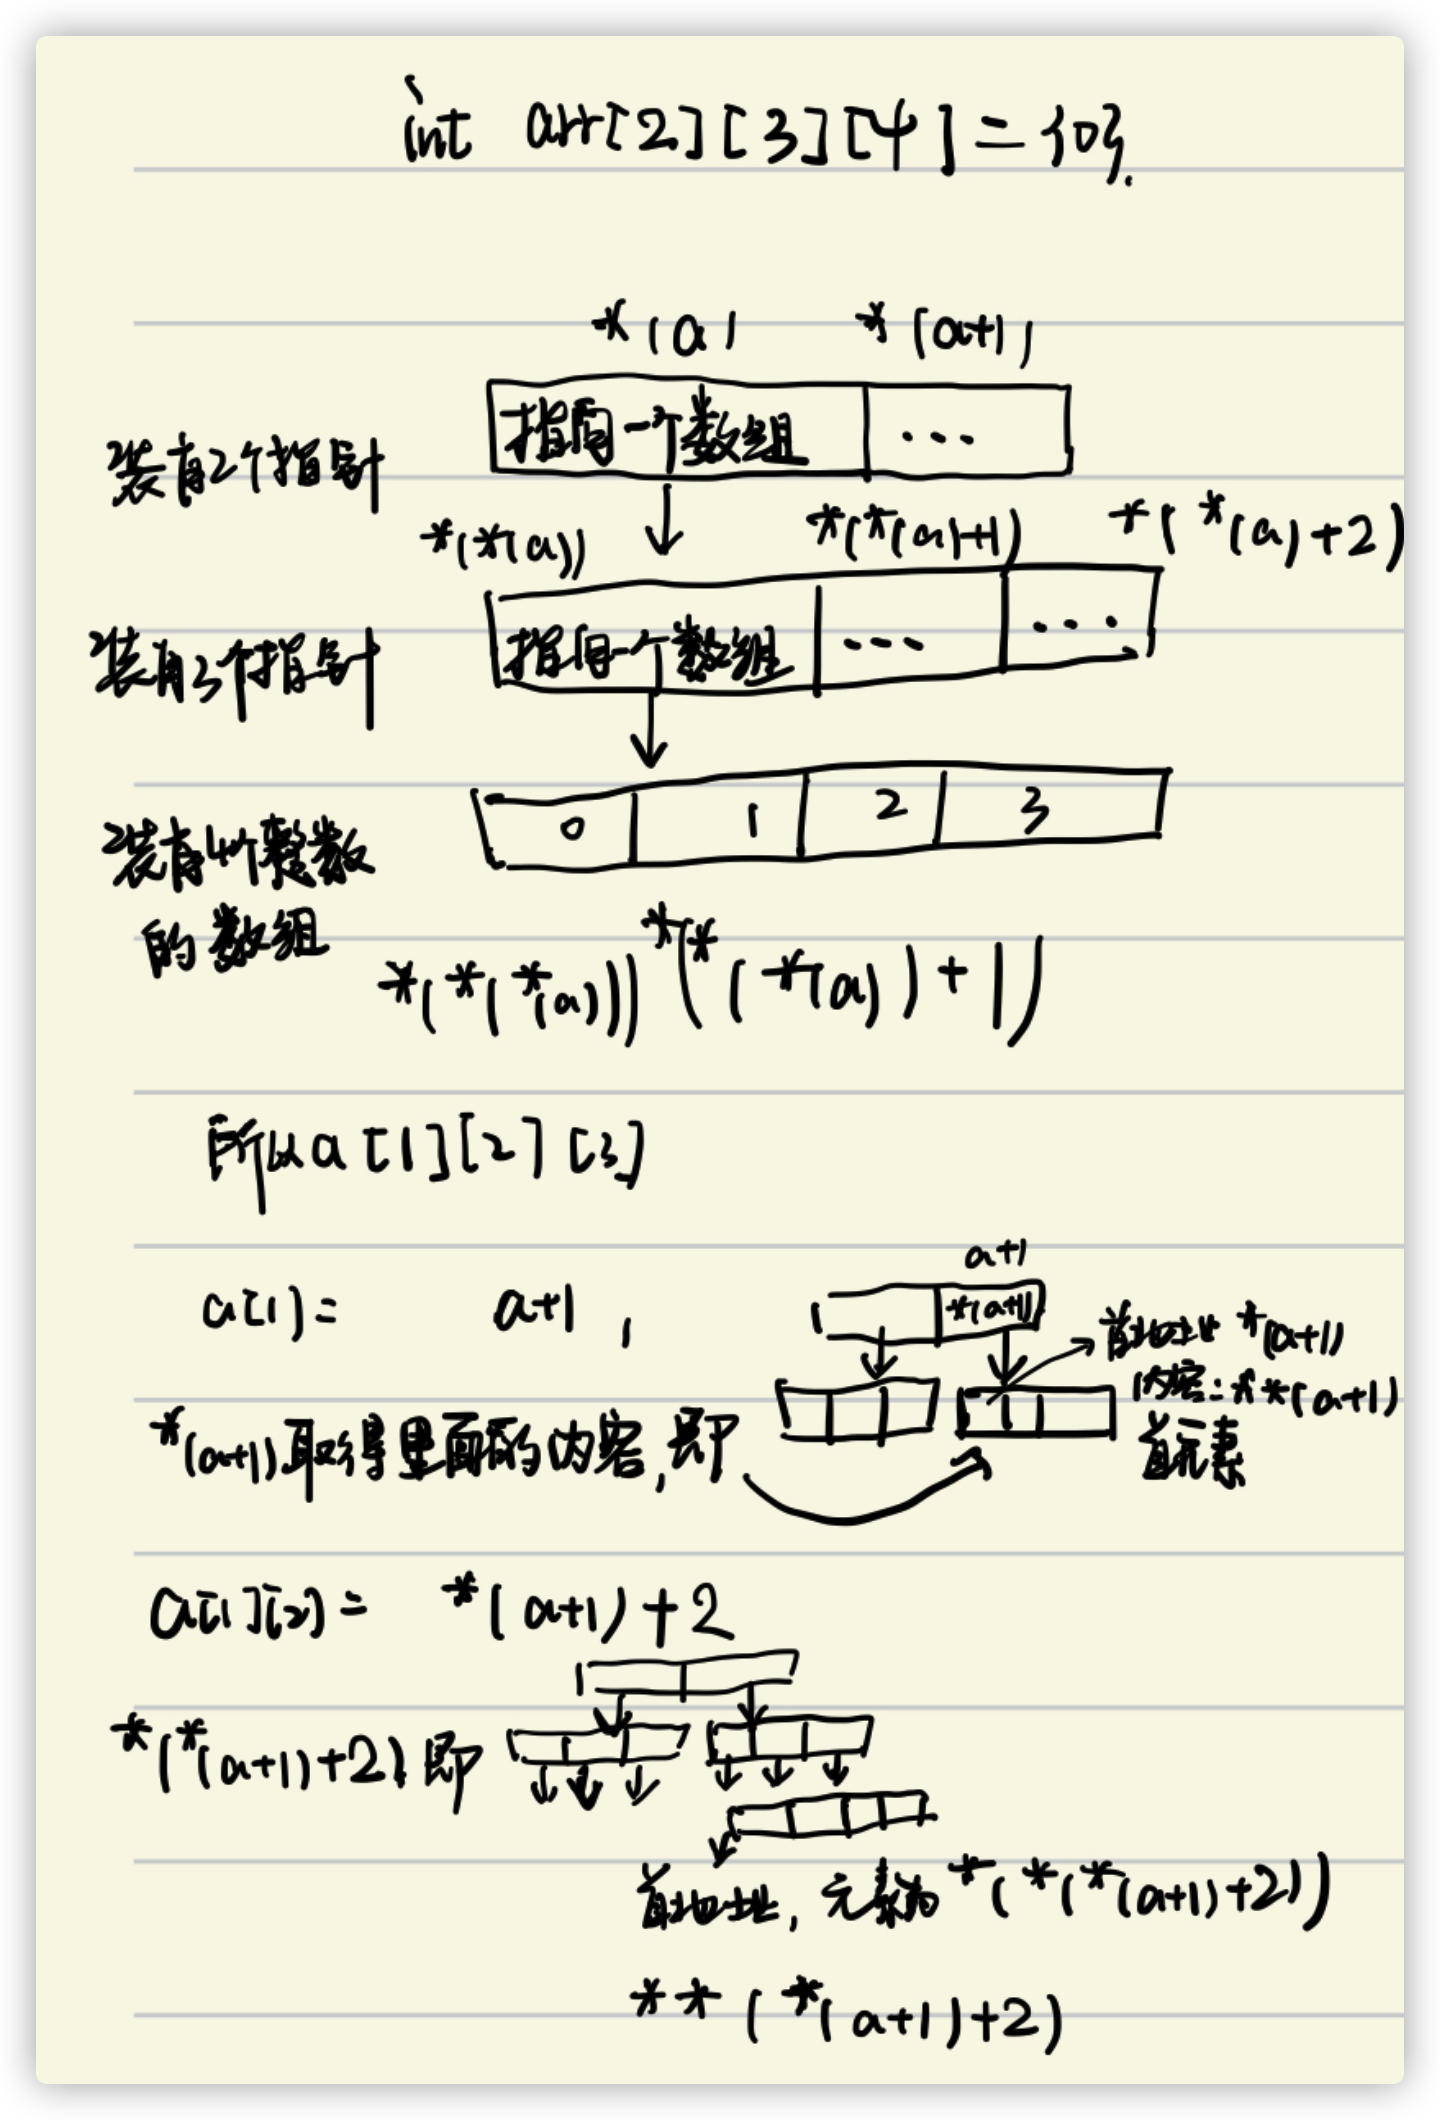 int arr[2][3][4] = {0};
*(a) *(a+1)
装有2个指针 指向一个数组 ...
*(*(a)) *(*(a)+1) *(*(a)+2)
装有3个指针 指向一个数组 ... ...
装有4个整数 0 1 2 3
的数组
*(*(*(a))) *(*(*(a))+1)
所以a[1][2][3]
a+1
a[1]= a+1, *(a+1) 首地址 *(a+1)
内容:**(a+1)
*(a+1)取得里面的内容,即 首元素
a[1][2]= *(a+1)+2
*(*(a+1)+2) 即
首地址,元素为*(*(*(a+1)+2))
**(*(a+1)+2)